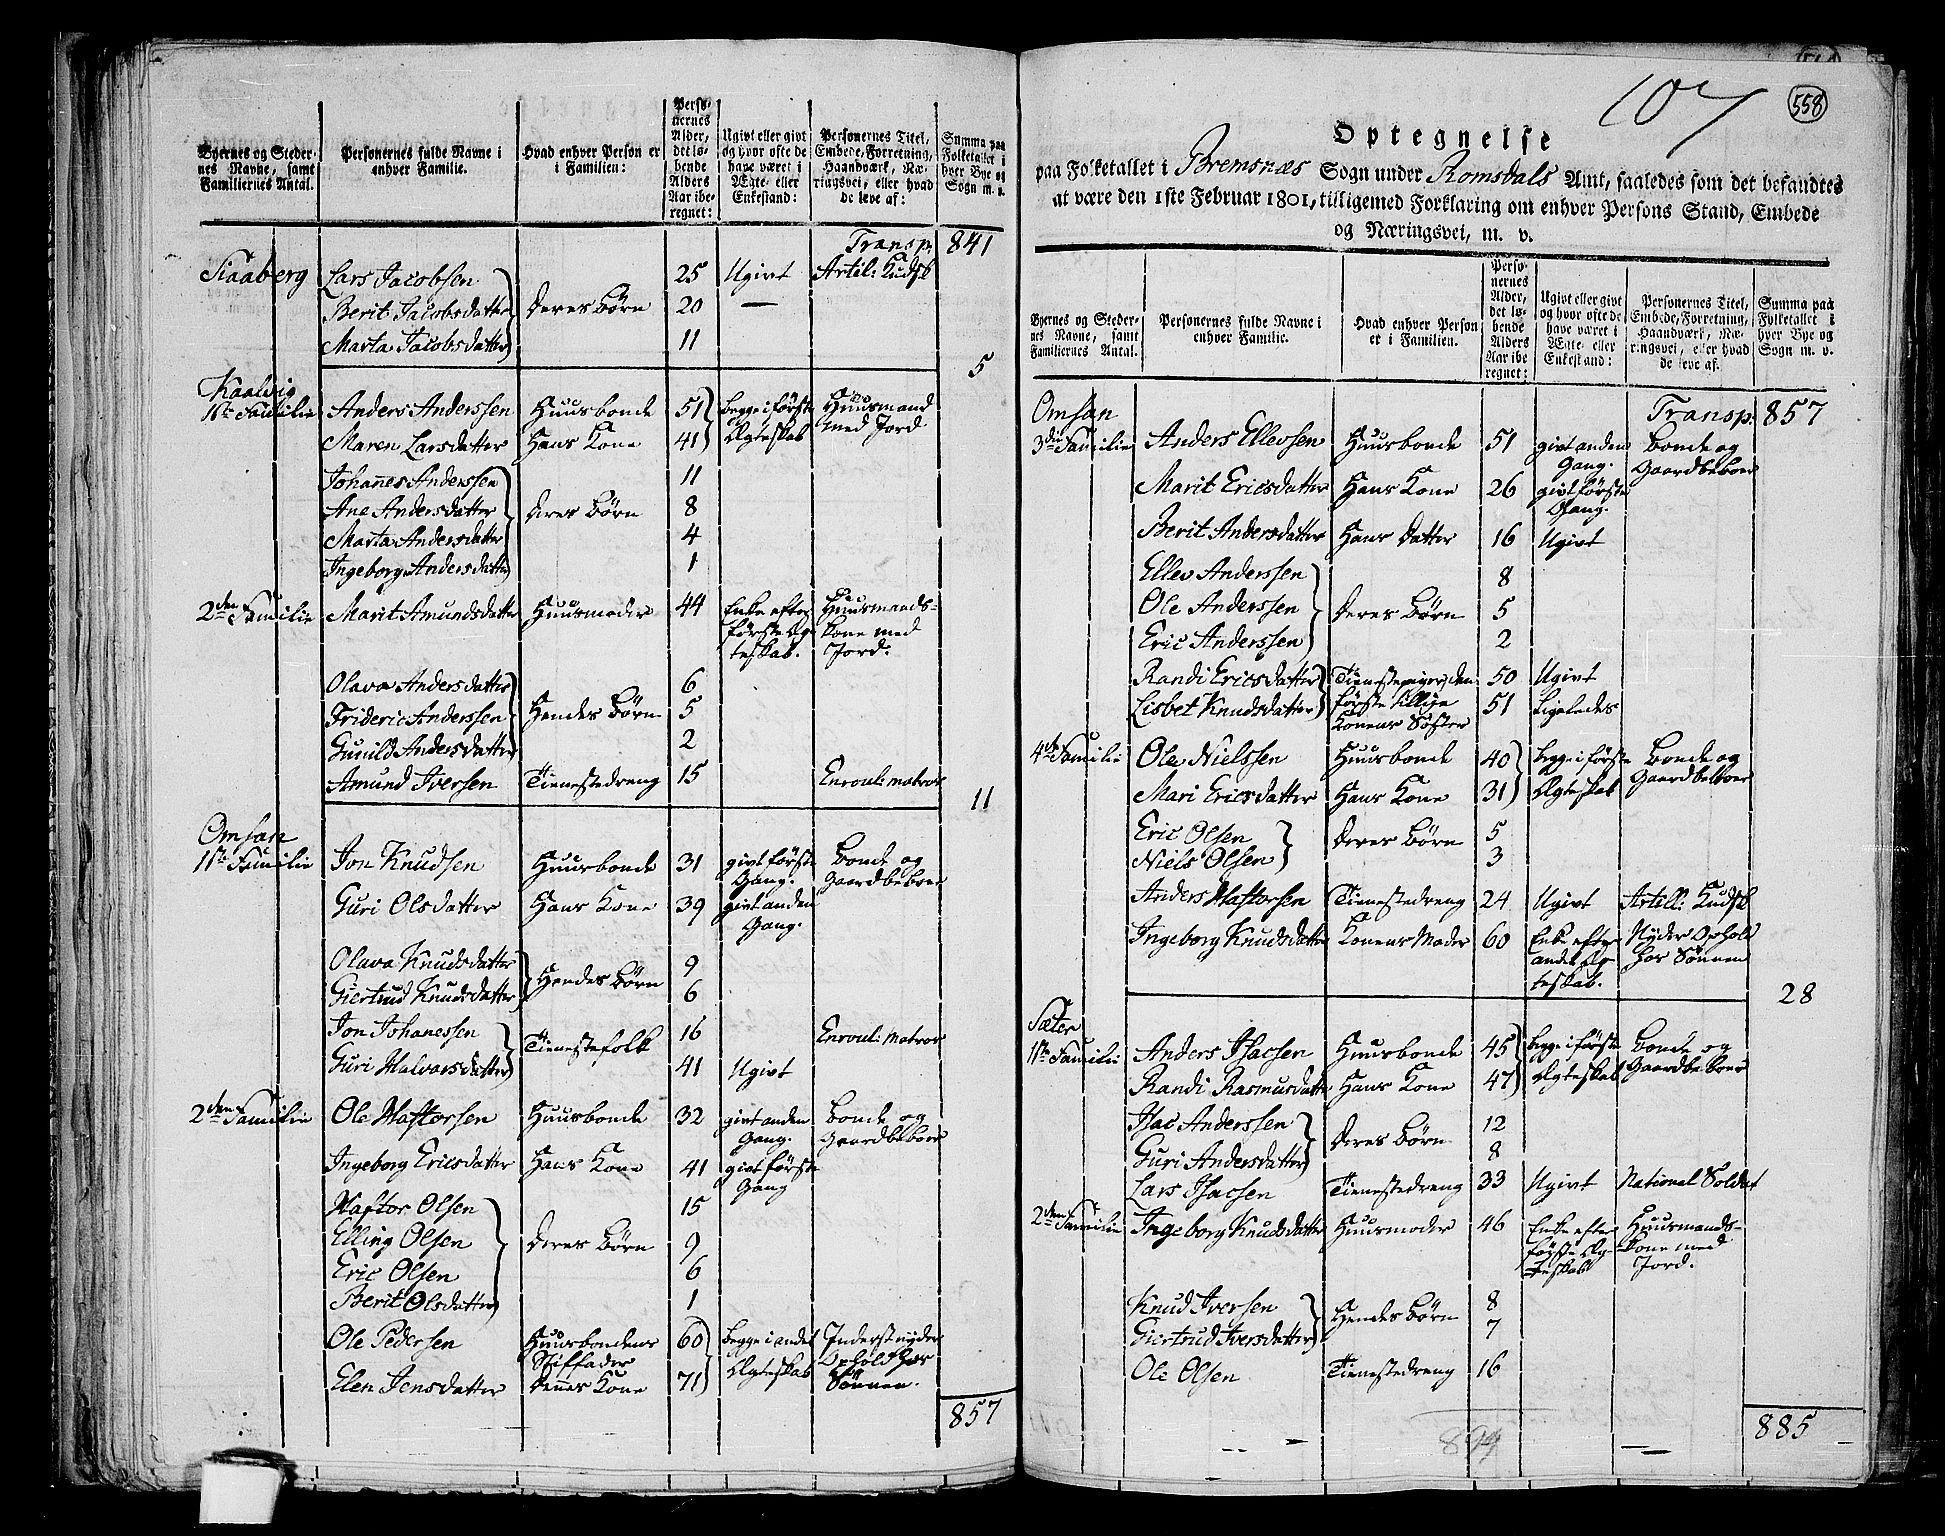 Byernes og Steder-
nes Navne, samt
Familiernes Antal.
Personernes fulde Navne i
enhver Familie.
Hvad enhver Person er
i Familien:
Perso-
nernes
Alder,
det lø-
bende
Alders
Aar ibe-
regnet:
Ugivt eller givt
og hvor ofte de
have været i
Ægte- eller
Enkestand:
Personernes Titel,
Embede, Forretning,
Haandværk, Næ-
ringsvei, eller hvad
de leve af:
Summa paa
Folketallet i
hver Bye og
Sogn m. v.
Transp. 841
Lars Jacobsen 25 Ugivt Artil: Kudsk
Berit Jacobsdatter Deres Børn 20 —
Marta Jacobsdatter 11
5
Kaalvig
1ste Familie Anders Anderssen Huusbonde 51 begge i første Huusmand
Maren Larsdatter Hans Kone 41 Ægteskab med Jord
Johannes Anderssen 11
Ane Andersdatter Deres Børn 8
Marta Andersdatter 4
Ingeborg Andersdatter 1
2den Familie Marit Amundsdatter Huusmoder 44 Enke efter Huusmands-
første Æg- kone med
teskab. Jord.
Olava Andersdatter 6
Frideric Anderssen Hendes Børn 5
Gunild Andersdatter 2
Amund Iversen Tienestedreng 15 Enroul: matros
11
Omsan
1ste Familie Jon Knudsen Huusbonde 31 givt første Bonde og
Gang. Gaardbeboer
Guri Olsdatter Hans Kone 39 givt anden
Gang.
Olava Knudsdatter 9
Giertrud Knudsdatter Hendes Børn 6
Jon Johanessen 16 Enroul: Matros
Guri Halvorsdatter Tienestefolk 41 Ugivt
2den Familie Ole Haftorsen Huusbonde 32 givt anden Bonde og
Gang. Gaardbeboer
Ingeborg Ericsdatter Hans Kone 41 givt første
Gang
Haftor Olsen 15
Elling Olsen Deres Børn 9
Eric Olsen 6
Berit Olsdatter 1
Ole Pedersen Huusbondens 60 begge i andet Inderst nyder
Stiffader Ophold hos
Elen Jensdatter Dennes Kone 71 Ægteskab Sønnen.
857
107
558
Optegnelse
paa Folketallet i Bremsnæs Sogn under Romsdals Amt, saaledes som det befandtes
at være den 1ste Februar 1801, tilligemed Forklaring om enhver Persons Stand, Embede
og Næringsvei, m. v.
Byernes og Steder-
nes Navne, samt
Familiernes Antal.
Personernes fulde Navne i
enhver Familie.
Hvad enhver Person
er i Familien.
Perso-
nernes
Alder,
det lø-
bende
Alders
Aar ibe
regnet:
Ugivt eller givt
og hvor ofte de
have været i
Ægte- eller
Enkestand:
Personernes Titel,
Embede, Forretning,
Haandværk, Næ-
ringsvei, eller hvad
de leve af.
Summa paa
Folketallet i
hver Bye og
Sogn m. v.
Omsan Transp: 857
3die Familie Anders Ellevsen Huusbonde 51 givt anden Bonde og
Gang. Gaardbeboer
Marit Ericsdatter Hans Kone 26 givt første
Gang.
Berit Andersdatter Hans Datter 16 Ugivt
Ellev Anderssen 8
Ole Anderssen Deres Børn 5
Eric Anderssen 2
Randi Ericsdatter Tienestepiger, den 50 Ugivt
Lisbet Knudsdatter første tillige 51 Ligeledes
Konens Søster
4de Familie Ole Nielssen Huusbonde 40 begge i første Bonde og
Mari Ericsdatter Hans Kone 31 Ægteskab Gaardbeboer
Eric Olsen Deres Børn 5
Niels Olsen 3
Anders Haftorsen Tienestedreng 24 Ugivt Artill: Kudsk
Ingeborg Knudsdatter Konens Moder 60 Enke efter Nyder Ophold
andet Æg hos Sønnen
teskab.
28
Sæter
1ste Familie Anders Isacsen Huusbonde 45 begge i første Bonde og
Randi Rasmusdatter Hans Kone 47 Ægteskab Gaardbeboer
Isac Anderssen 12
Guri Andersdatter Deres Børn 8
Lars Isacsen Tienestedreng 33 Ugivt National Soldat
2den Familie Ingeborg Knudsdatter Huusmoder 46 Enke efter Huusmands-
første Æg- kone med
teskab Jord.
Knud Iversen 8
Giertrud Iversdatter Hendes Børn 7
Ole Olsen Tienestedreng 16
885